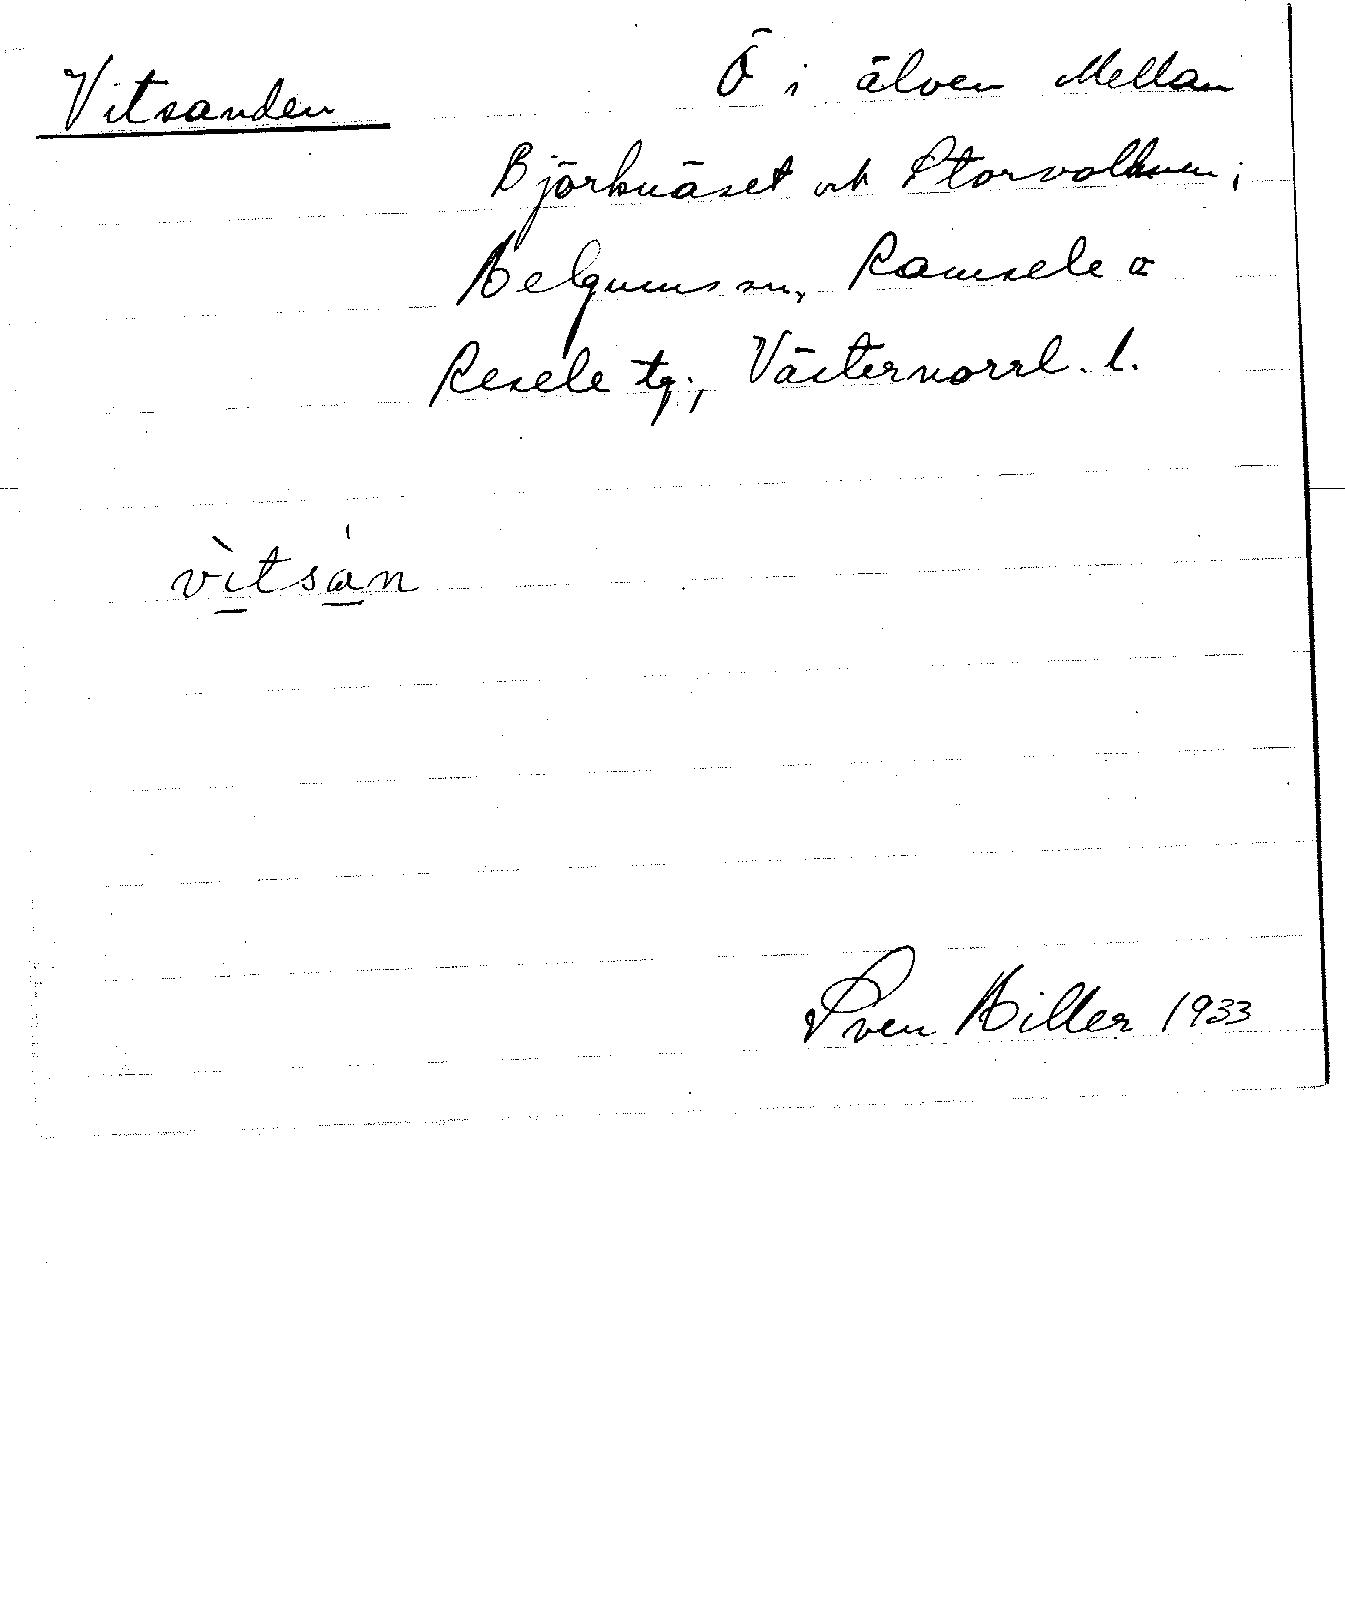 Vitsanden
Ö i älven Mellan
Björknäset och Storvallen i
Helgums sn, Ramsele o
Resele tg., Västernorrl. l.
vìtsán
Sven Hiller 1933